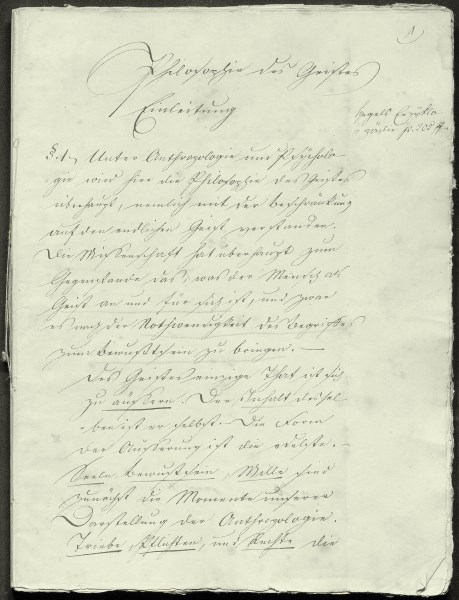 1
Philosophie des Geistes
Einleitung
Hegels Encyklo-
pädie p. 202 ff.
§. 1. Unter Anthropologie und Psycholo-
gie wird hier die Philosophie des Geistes
überhaupt, nemlich mit der Beschränkung
auf den endlichen Geist verstanden.
Die Wissenschaft hat überhaupt zum
Gegenstande das, was der Mensch als
Geist an und für sich ist, und zwar
es nach der Nothwendigkeit des Begriffes
zum Bewußtsein zu bringen. —
Des Geistes einzige That ist sich
zu äussern. Der Inhalt dessel-
ben ist er selbst. Die Form
der Äusserung ist die
Seele Bewustsein, Wille sind
zunächst die Momente unserer
Darstellung der Anthropologie.
Triebe, Pflichten, und Rechte die